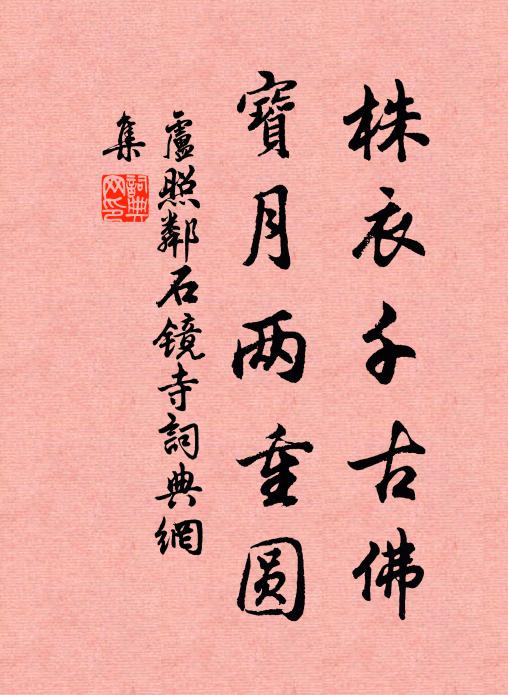 株衣千古佛
寶月两重圆
盧照鄰石鏡寺詞典網
集
詞典网印